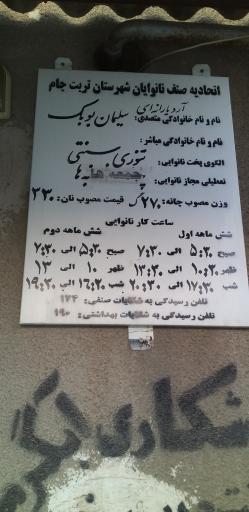 اتحادیه صنف نانوایان شهرستان تربت جام
آرد یارانه ای
نام و نام خانوادگی متصدی: سلیمان بوبک
نام و نام خانوادگی مباشر:
الگوی پخت نانوایی: تنوری سنتی
تعطیلی مجاز نانوایی: جمعه ها
وزن مصوب چانه: ۲۷۰ گ قیمت مصوب نان: ۲۳۰
ساعت کار نانوایی
شش ماهه اول شش ماهه دوم
صبح ۵:۳۰ الی ۷:۳۰ صبح ۵:۳۰ الی ۷:۳۰
ظهر ۱۰:۳۰ الی ۱۳:۳۰ ظهر ۱۰ الی ۱۳
شب ۱۷:۳۰ الی ۲۰:۳۰ شب ۱۶:۳۰ الی ۱۹:۳۰
تلفن رسیدگی به شکایات صنفی: ۱۲۴
تلفن رسیدگی به شکایات بهداشتی: ۱۹۰
شکاری